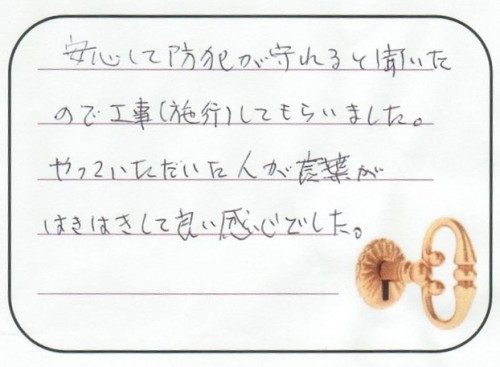 安心して防犯が守れると聞いた
ので工事(施行)してもらいました。
やっていただいた人が言葉が
はきはきして良い感じでした。